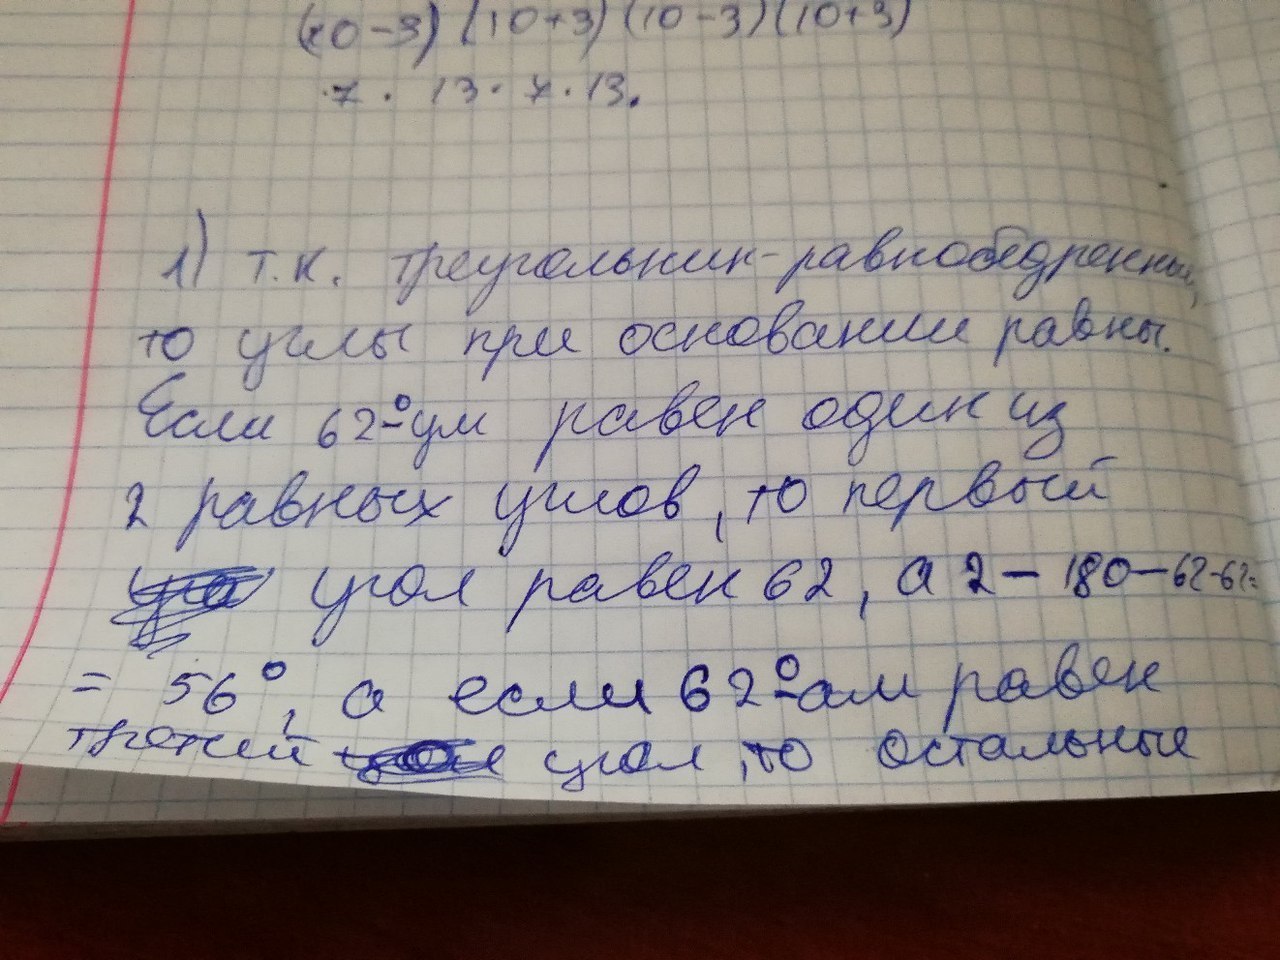 (10-3) (10+3) (10-3) (10+3)
7 . 13 . 7 . 13.
1) т.к. треугольник-равнобедренный,
то углы при основании равны.
Если 62°-ум равен один из
2 равных углов, то первый
угол равен 62, а 2 - 180-62-62=
= 56°, а если 62°-ам равен
третий угол, то остальные